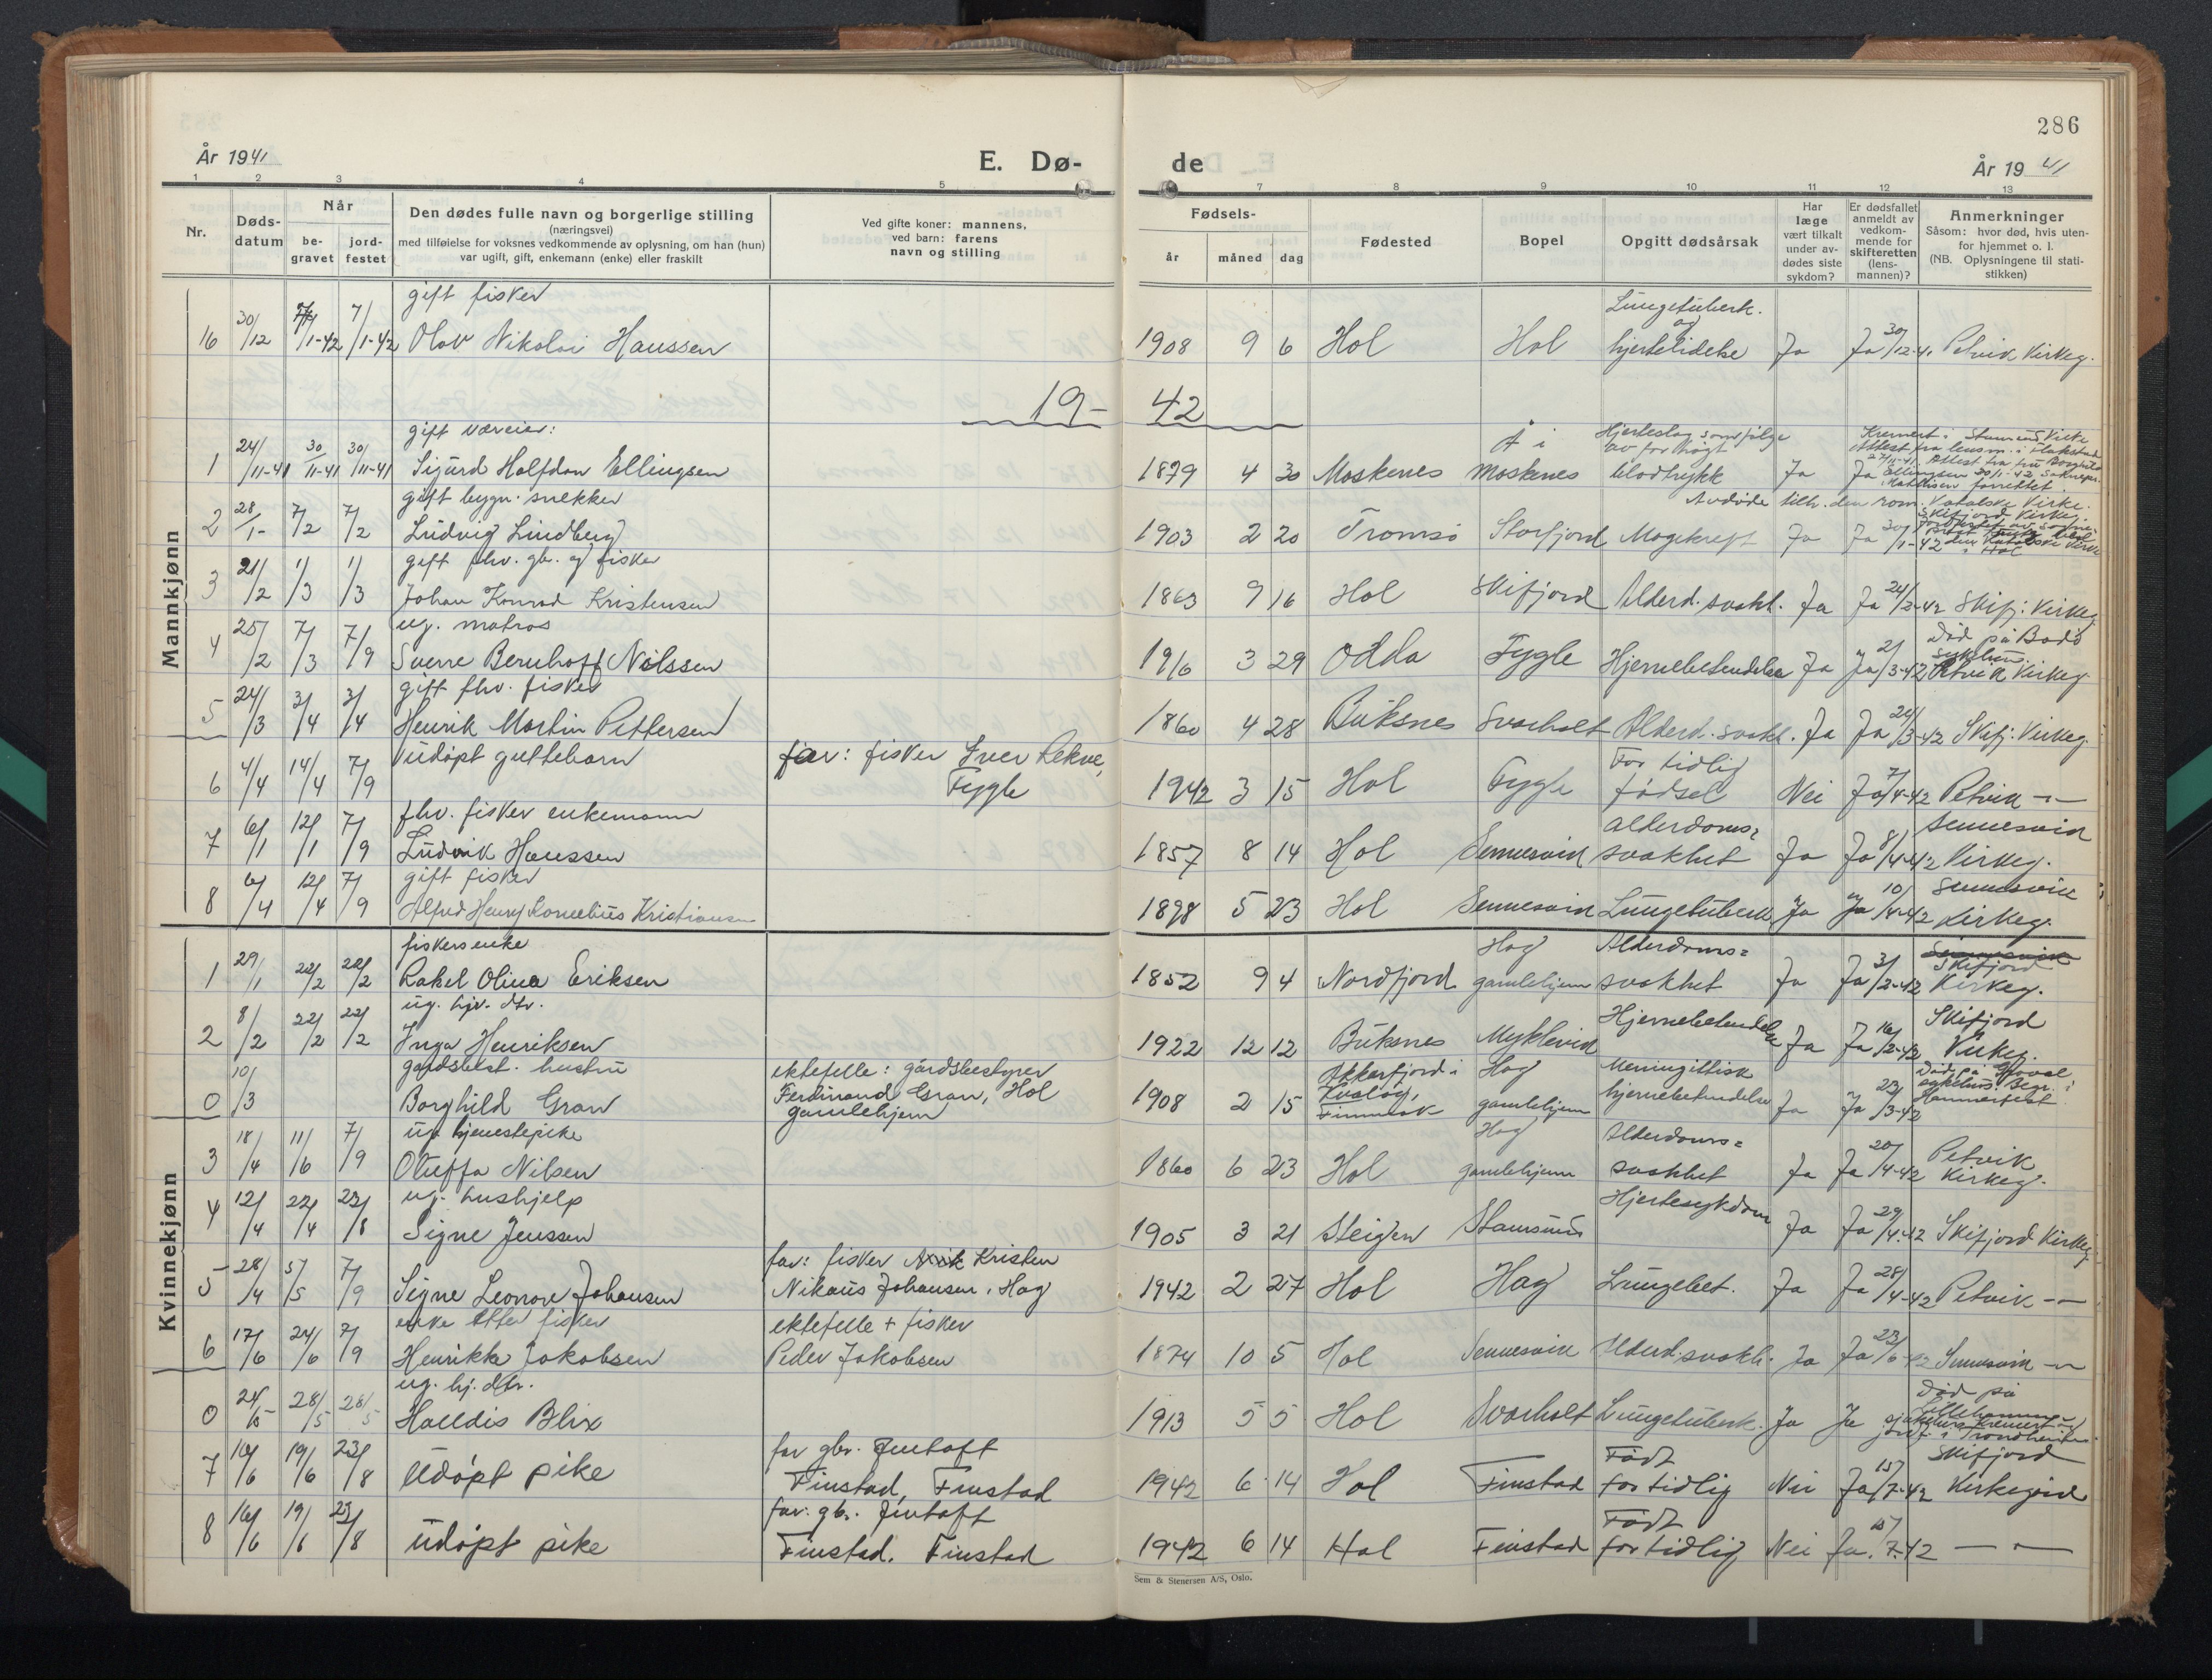 286
År 1941
E. Dø-
de
År 1941
1 2 3 4 5 7 8 9 10 11 12 13
Nr.
Døds-
datum
Når
be-
gravet
jord-
festet
Den dødes fulle navn og borgerlige stilling
(næringsvei)
med tilføielse for voksnes vedkommende av oplysning, om han (hun)
var ugift, gift, enkemann (enke) eller fraskilt
Ved gifte koner: mannens,
ved barn: farens
navn og stilling
Fødsels-
år måned dag
Fødested
Bopel
Opgitt dødsårsak
Har
læge
vært tilkalt
under av-
dødes siste
sykdom?
Er dødsfallet
anmeldt av
vedkom-
mende for
skifteretten
(lens-
mannen)?
Anmerkninger
Såsom: hvor død, hvis uten-
for hjemmet o. l.
(NB. Oplysningene til stati-
stikken)
Mannkjønn
gift fisker Lungetuberk.
og
16 30/12 7/1-42 7/1-42 Olav Nikolai Hanssen 1908 9 6 Hol Hol hjertelidelse Ja Ja 30/12-41 Petvik kirkeg.
19- 42
gift væreier: Å i Hjerteslag som følge av for høgt Kremert i Stamsund kirke
1 24/11-41 30/11-41 30/11-41 Sigurd Halfdan Ellingsen 1879 4 30 Moskenes Moskenes blodtrykk Ja Ja
Avdøde tilh. den rom. katolske kirke.
gift bygn. snekker
2 28/1- 7/2 7/2 Ludvig Lindberg 1903 2 20 Tromsø Storfjord Magekreft Ja Ja 30/1-42 Skifjord kirkeg.
gift fhv. gb. og fisker
3 21/2 1/3 1/3 Johan Konrad Kristensen 1863 9 16 Hol Skifjord Alderd. svakh. Ja Ja 24/2-42 Skifj. kirkeg
ug. matros Død på Bodø
sykehus.
4 25/2 7/3 7/9 Sverre Bernhoff Nilssen 1916 3 29 Odda Fygle Hjernebetendelse Ja Ja 2/3-42 Petvik kirkeg
gift fhv. fisker
5 24/3 3/4 3/4 Henrik Martin Pettersen 1860 4 28 Buksnes Svarholt Alderd. svakh. Ja Ja 24/3-42 Skifj. kirkeg.
udøpt guttebarn far: fisker Iver Rekve, For tidlig
6 4/4 14/4 7/9 Fygle 1942 3 15 Hol Fygle fødsel Nei Ja 7/4-42 Petvik -"-
fhv. fisker enkemann Alderdoms= Sennesvik
7 6/1 12/1 7/9 Ludvik Hanssen 1857 8 14 Hol Sennesvik svakhet Ja Ja 8/4-42 kirkeg.
gift fisker Sennesvik
8 6/4 12/4 7/9 Alfred Henry Kornelius Kristiansen 1898 5 23 Hol Sennesvik Lungetuberk Ja Ja 10/4-42 kirkeg.
Kvinnekjønn
fiskers enke Hag Alderdoms= Skifjord
1 29/1 22/2 22/2 Rakel Olina Eriksen 1852 9 4 Nordfjord gamlehjem svakhet Ja Ja 3/2-42 kirkeg.
ug. hjv. dtr. Hjernebetendelse Skifjord
2 8/2 22/2 22/2 Inga Henriksen 1922 12 12 Buksnes Myklevik Ja Ja 16/2-42 kirkeg.
gårdsbest. hustru ektefelle: gårdsbestyrer Akkarfjord i Hag Meningittisk
0 10/3 Borghild Gran Ferdinand Gran, Hol 1908 2 15 Kvaløy, gamlehjem hjernebetendelse Ja Ja 23/3-42 Hammerfest
gamlehjem Finnmark
ug. tjenestepike Hag Alderdoms= Petvik
3 18/4 11/6 7/9 Oluffa Nilsen 1860 6 23 Hol gamlehjem svakhet Ja Ja 20/4-42 kirkeg.
ug. hushjelp Hjertesykdom
4 12/4 22/4 23/8 Signe Jenssen 1905 3 21 Steigen Stamsund Ja Ja 29/4-42 Skifjord kirkeg
far: fisker Kristen
5 28/4 5/5 7/9 Signe Leonore Johansen Nikaus Johansen, Hag 1942 2 27 Hol Hag Lungebet. Ja Ja 28/4-42 Petvik -"-
enke etter fisker ektefelle + fisker
6 17/6 24/6 7/9 Henrikke Jakobsen Peder Jakobsen 1874 10 5 Hol Sennesvik Alderd. svakh. Ja Ja 23/6-42 Sennesvik -"-
ug. hj. dtr. Død på
0 24/5 28/5 28/5 Halldis Blix 1913 5 5 Hol Svarholt Lungetuberk. Ja Ja
far gbr. Jentoft Født Skifjord
7 16/6 19/6 23/8 udøpt pike Finstad, Finstad 1942 6 14 Hol Finstad for tidlig Nei Ja 15/7-42 kirkegård
far: gbr. Jentoft Født
8 16/6 19/6 23/8 udøpt pike Finstad. Finstad 1942 6 14 Hol Finstad for tidlig Nei Ja. 15/7-42 -"-
Sem & Stenersen A/S, Oslo.